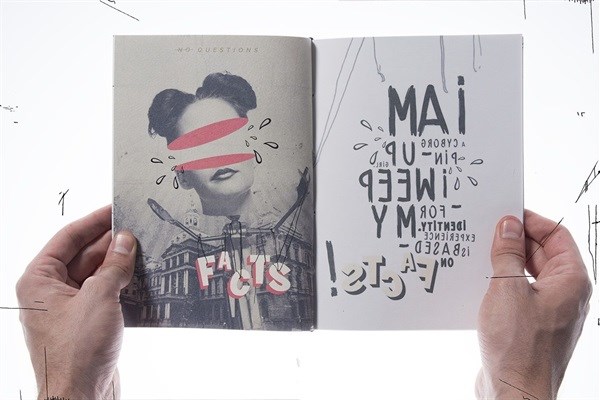 NO QUESTIONS
FACTS
i AM
A CYBORG
PIN-UP
GIRL
i WEEP
-FOR-
MY
iDENTITY.
EXPERIENCE
iS BASED
ON
FACTS!